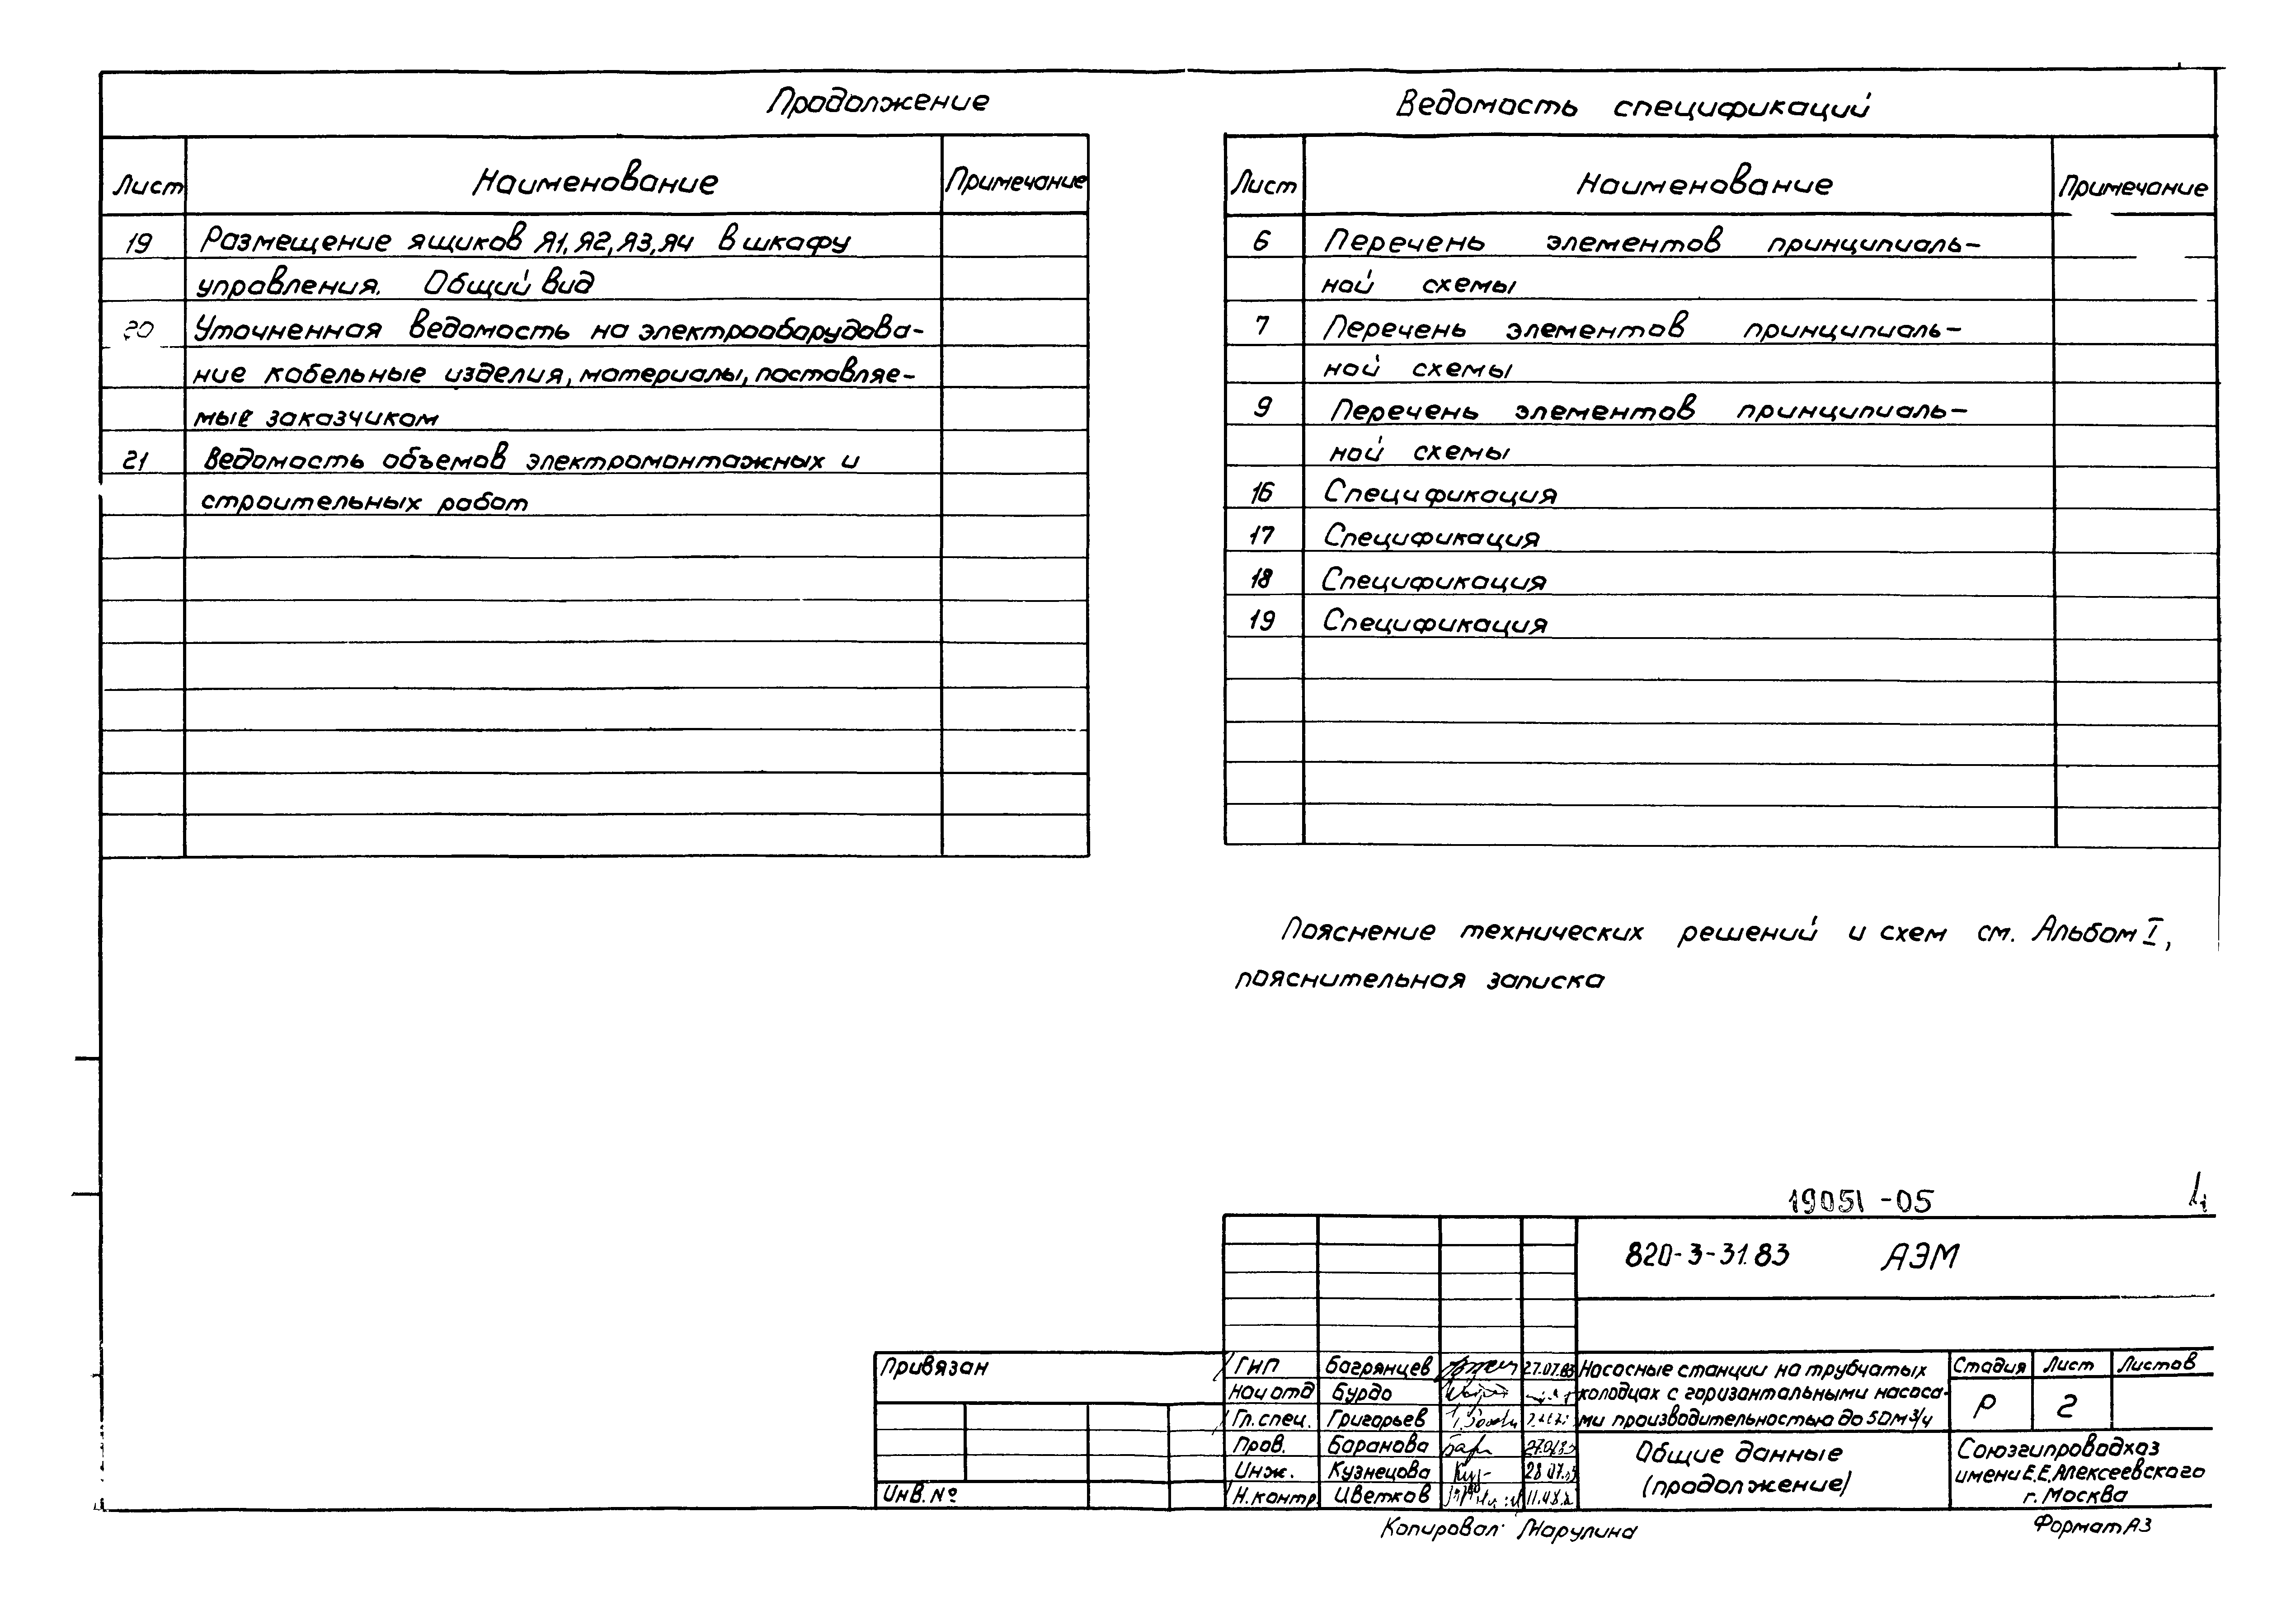 Продолжение
Лист Наименование Примечание
19 Размещение ящиков Я1, Я2, Я3, Я4 в шкафу
управления. Общий вид
20 Уточненная ведомость на электрооборудова-
ние кабельные изделия, материалы, поставляе-
мые заказчиком
21 Ведомость объемов электромонтажных и
строительных работ
Ведомость спецификаций
Лист Наименование Примечание
6 Перечень элементов принципиаль-
ной схемы
7 Перечень элементов принципиаль-
ной схемы
9 Перечень элементов принципиаль-
ной схемы
16 Спецификация
17 Спецификация
18 Спецификация
19 Спецификация
Пояснение технических решений и схем см. Альбом I,
пояснительная записка
19051-05 4
820-3-31.83 АЭМ
Привязан
Инв. №
ГИП Багрянцев 27.07.83
Нач отд Бурдо
Гл. спец. Григорьев
Пров. Баранова
Инж. Кузнецова
Н. контр. Цветков
Насосные станции на трубчатых
колодцах с горизонтальными насоса-
ми производительностью до 50м3/ч
Стадия Лист Листов
Р 2
Общие данные
(продолжение)
Союзгипроводхоз
имени Е.Е. Алексеевского
г. Москва
Копировал: Марулина
Формат А3